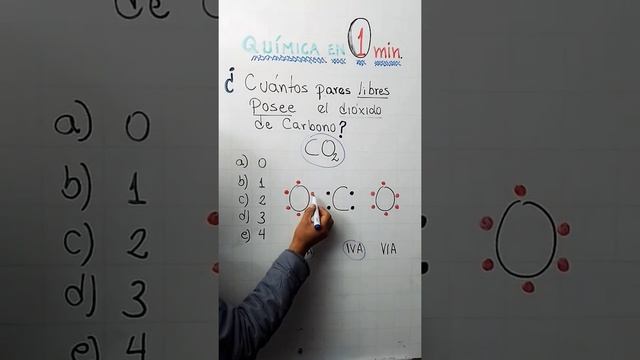 QUÍMICA EN 1 min.
¿Cuántos pares libres
Posee el dióxido
de Carbono?
CO2
a) 0
b) 1
c) 2
d) 3
e) 4
O C O
IVA VIA
a) 0
b) 1
c) 2
d) 3
e) 4
O